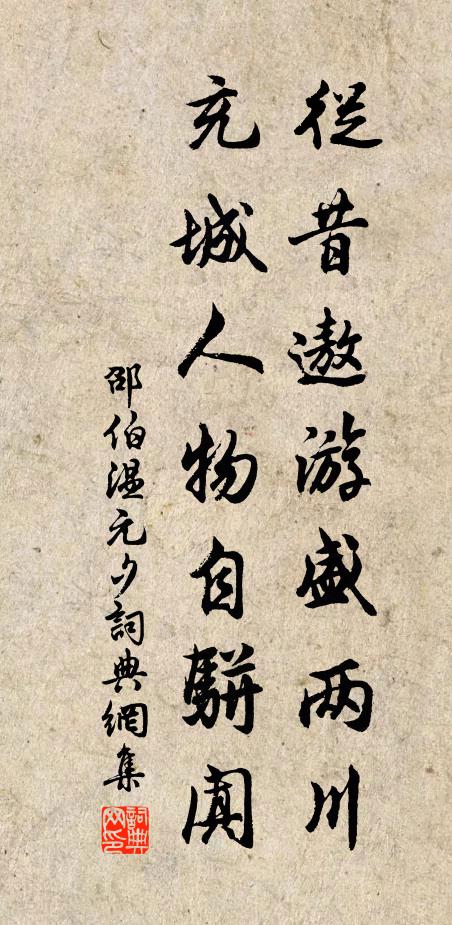 從昔遨游盛两川
充城人物自駢闐
邵伯温元夕詞典網集
詞典網印